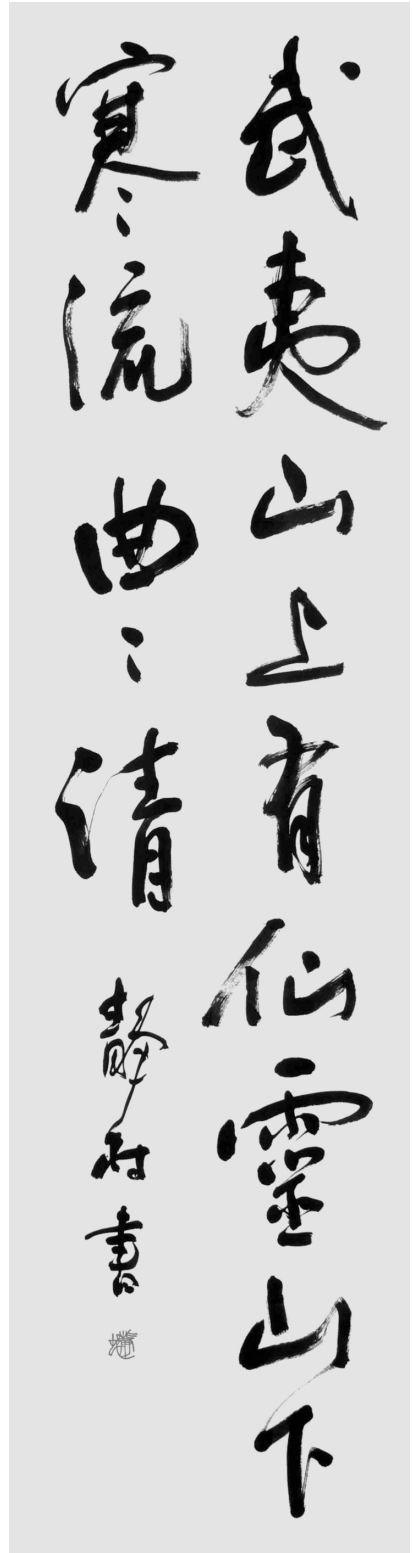 武夷山上有仙靈山下
寒〻流曲〻清
靜村書